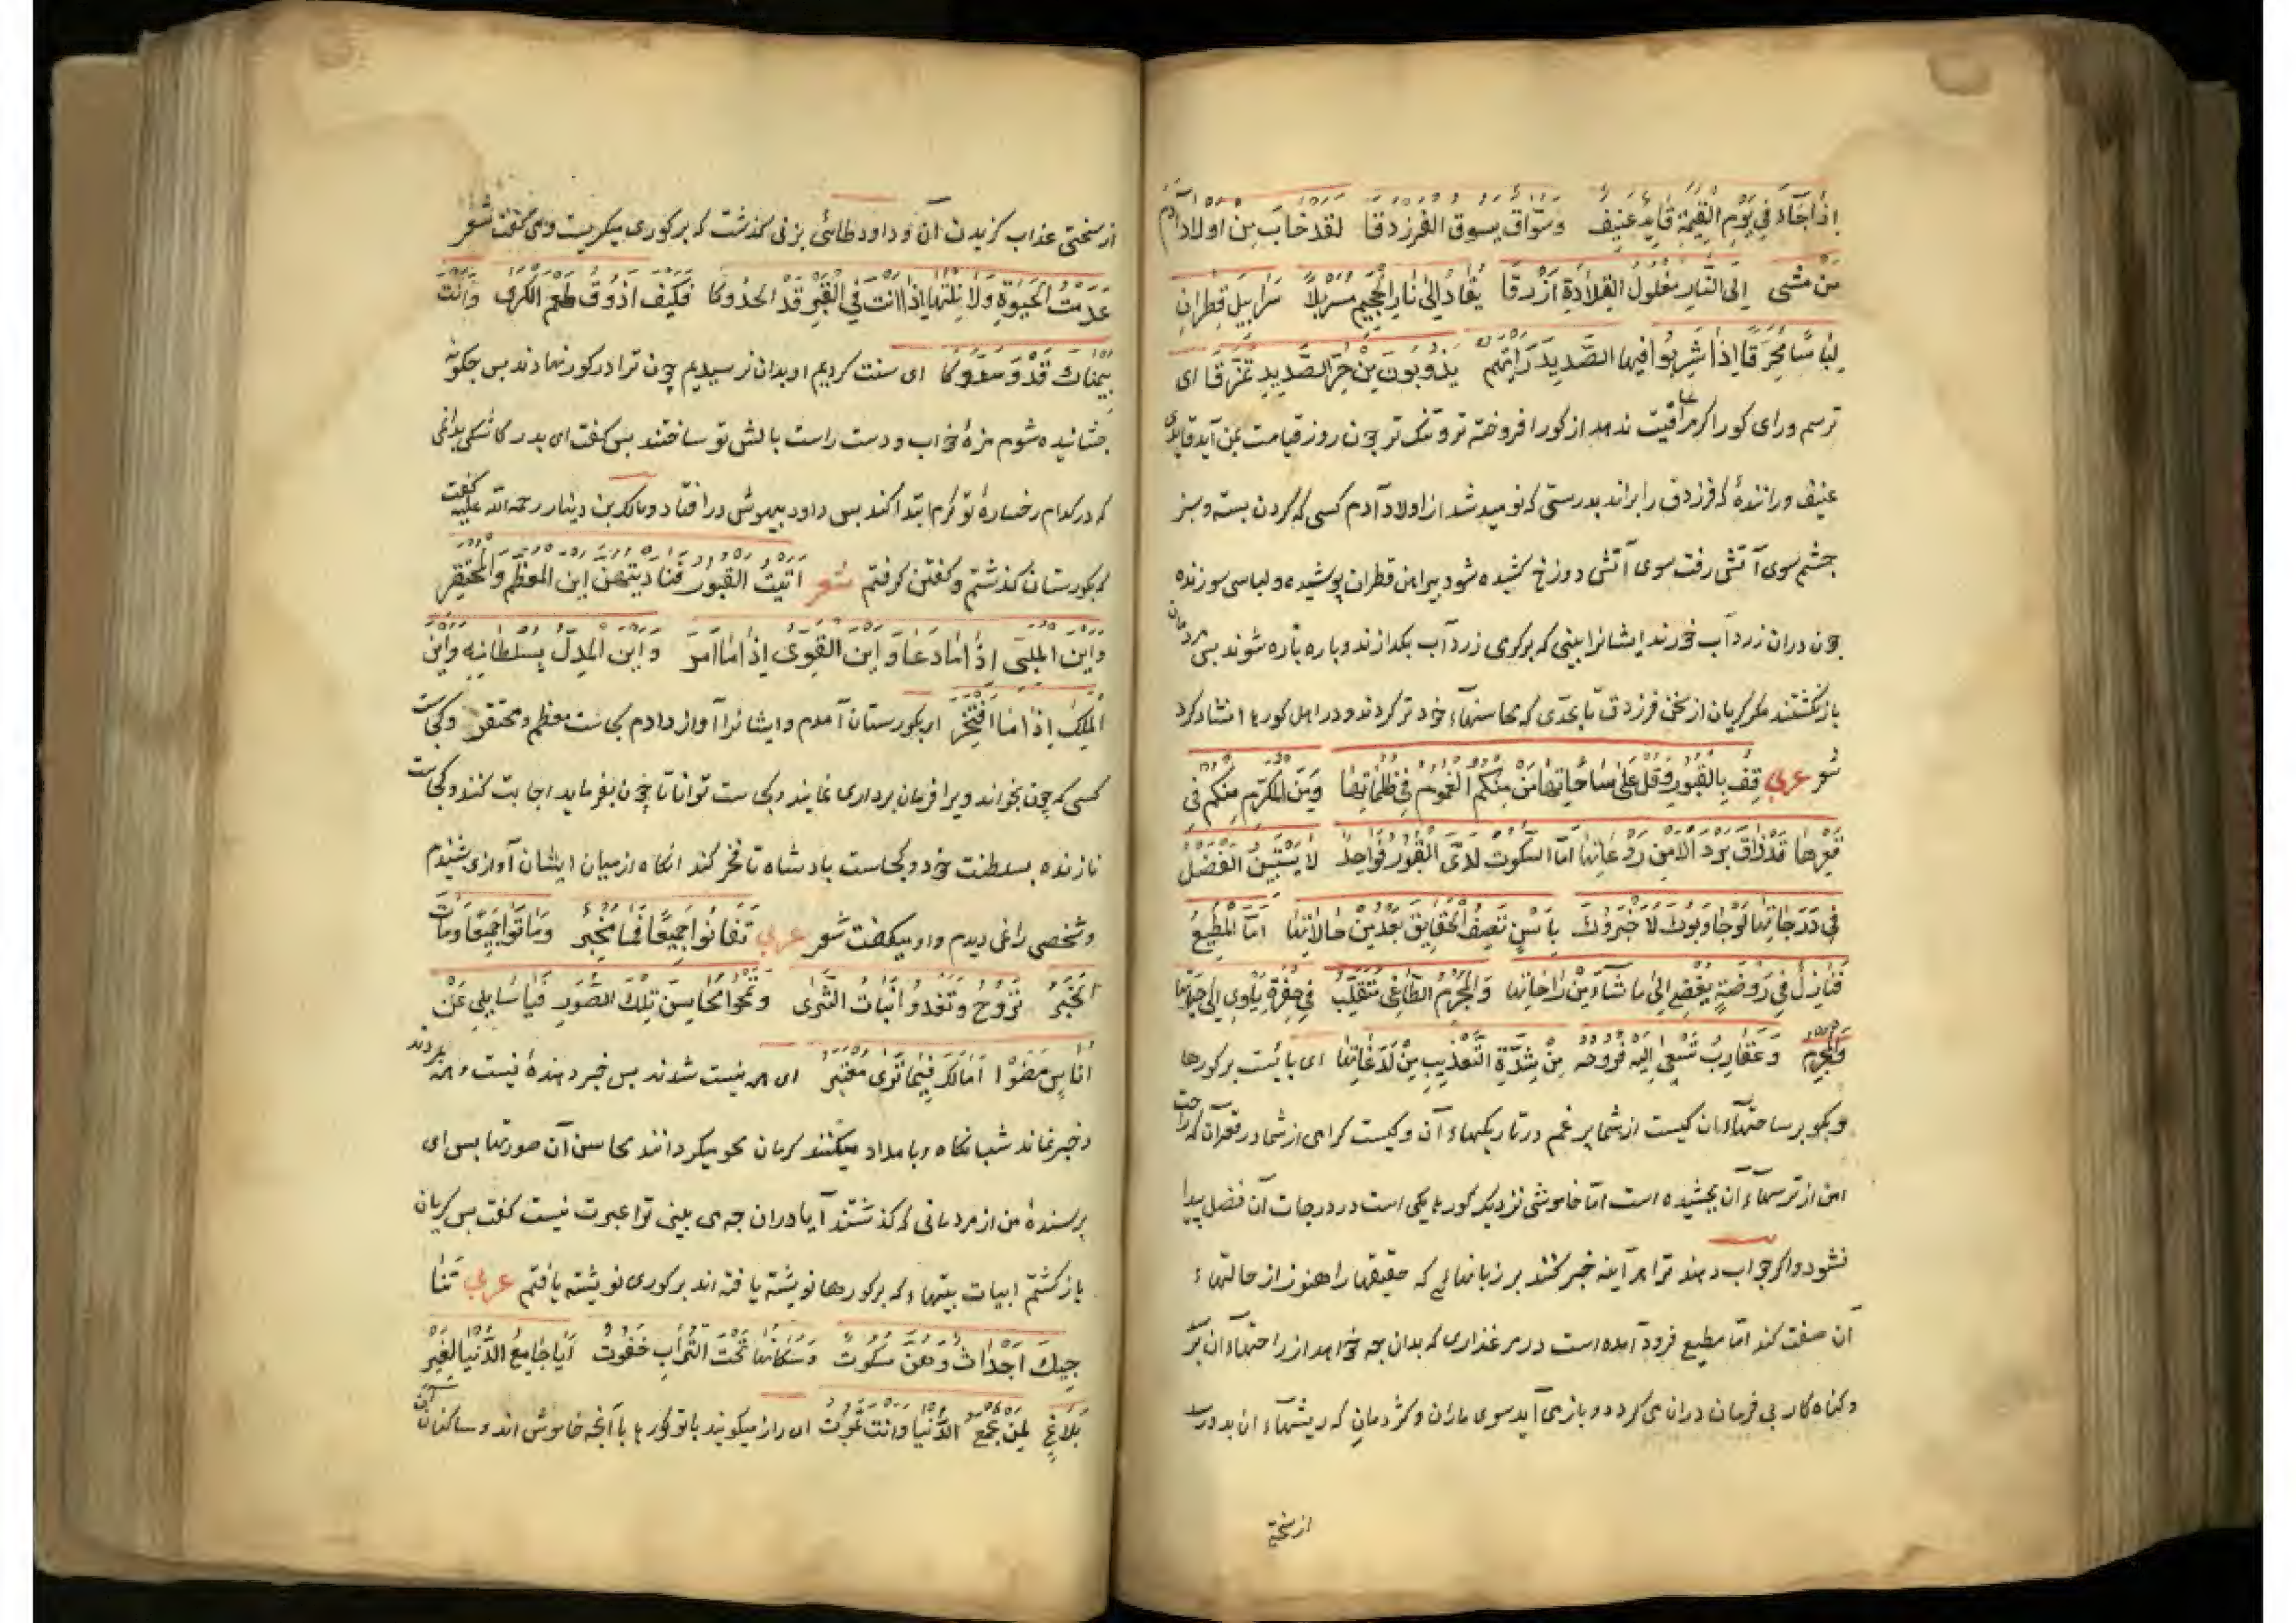 اذا جاء فی یوم القیمة قاید عنیف وسواق یسوق الفرزدقا لقد خاب من اولاد آدم
من مشی الی النار مغلول القلادة ازرقا یقاد الی نار الجحیم مسربلا سرابیل قطران
لباسا محرقا اذا شربوا فیها الصدید رایتهم یذوبون من حر الصدید تمزقا ای
ترسم ورای کور اکر مرا عافیت ندهد از کور افروخته تر و تنک تر چون روز قیامت بمن آید قایدی
عنیف و رانندهٔ که فرزدق را براند بدرستی که نومید شد از اولاد آدم کسی که کردن بسته و سبز
چشم سوی آتش رفت سوی آتش دوزخ کشیده شود پیراهن قطران پوشیده و لباسی سوزنده
چون دران زرد آب خورند ایشانرا بینی که بر کرمی زرد آب بکدازند و پاره پاره شوند پس مردمان
باز کشتند مکر کریان از سخن فرزدق تا بحدی که محاسنهاء خود تر کردند و در اهل کورها انشاد کرد
شعر عربی قف بالقبور وقل علی ساحاتها من منکم المغموم فی ظلماتها ومن المکرم منکم فی
قعرها قد ذاق برد الامن من روعاتها اما السکوت لدی القبور فواحد لا یستبین الفضل
فی درجاتها لو جاوبوك لاخبروك بالسن تصف الحقایق بعد من حالاتها اما المطیع
فنازل فی روضة یفضی الی ما شاء من راحاتها والمجرم الطاغی متقلب فی حفرة یاوی الی حیاتها
وعقارب تسعی الیه فروحه من شدة التعذیب من لدغاتها ای بایست بر کورها
و بکو بر ساحتهاء ان کیست از شما پر غم در تاریکیهاء آن و کیست کرامی از شما در قعر آن که راحت
امن از ترسهاء ان بچشیده است اما خاموشی نزدیک کورها یکی است در درجات آن فضل پیدا
نشود و اکر جواب دهند ترا هر آینه خبر کنند بر زبانهائی که حقیقتها را هنوز از حالتهاء
آن صفت کند اما مطیع فرود آمده است در مرغذاری که بدان چه خواهد از راحتهاء ان برسد
و کناه کار بی فرمان دران می کردد و باز می آید سوی ماران و کژدمان که ریشهاء ان بدو رسد
از سختی
از سختی عذاب کزیدن آن و داود طائی بزنی کذشت که بر کوری میکریست و می کفت شعر
عدمت الحیوة ولا نلتها اذا انت فی القبر قد الحدوکا فکیف اذوق طعم الکری وانت
بیمناك قد وسدوکا ای سنت کردیم او بدان نرسیدیم چون ترا در کور نهادند پس چکونه
چشانیده شوم مزهٔ خواب و دست راست بالش تو ساختند پس کفت ای پدر کاشکی بدانمی
که در کدام رخسارهٔ تو کرم ابتدا کند پس داود بیهوش در افتاد و مالک بن دینار رحمة الله علیه کفت
که بکورستان کذشتم و کفتن کرفتم شعر اتیت القبور فنادیتهن این المعظم والمحتقر
واین الملبی اذا ما دعا واین القوی اذا ما امر واین المدل بسلطانه واین
الملك اذا ما افتخر ای بکورستان آمدم و ایشانرا آواز دادم کجاست معظم و محتقر و کجاست
کسی که چون بخواند ویرا فرمان برداری نمایند و کجاست توانا تا چون بفرماید اجابت کنند و کجاست
نازنده بسلطنت خود و کجاست پادشاه تا فخر کند آنکاه از میان ایشان آوازی شنیدم
و شخصی را نمی دیدم و او میکفت شعر عربی تفانوا جمیعا فما مخبر وماتوا جمیعا ومات
الخبر تروح وتغدو انبات الثری وتمحوا محاسن تلك الصور فیا سایلی عن
اناس مضوا امالك فیما تری معتبر ای همه نیست شدند پس خبر دهندهٔ نیست و همه مردند
و خبر نماند شبانکاه و بامداد میکنند کرمان محو میکردانند محاسن آن صورتها پس ای
پرسندهٔ من از مردمانی که کذشتند آیا دران چه می بینی ترا عبرت نیست کفت پس کریان
باز کشتم ابیات بیتهاء که بر کورها نویشته یافته اند بر کوری نویشته یافتم عربی تنا
جیك اجداث وهن سکوت وسکانها تحت التراب خفوت ایا جامع الدنیا لغیر
بلاغ لمن تجمع الدنیا وانت تموت ای راز میکویند با تو کورها با آنچه خاموش اند و ساکنان